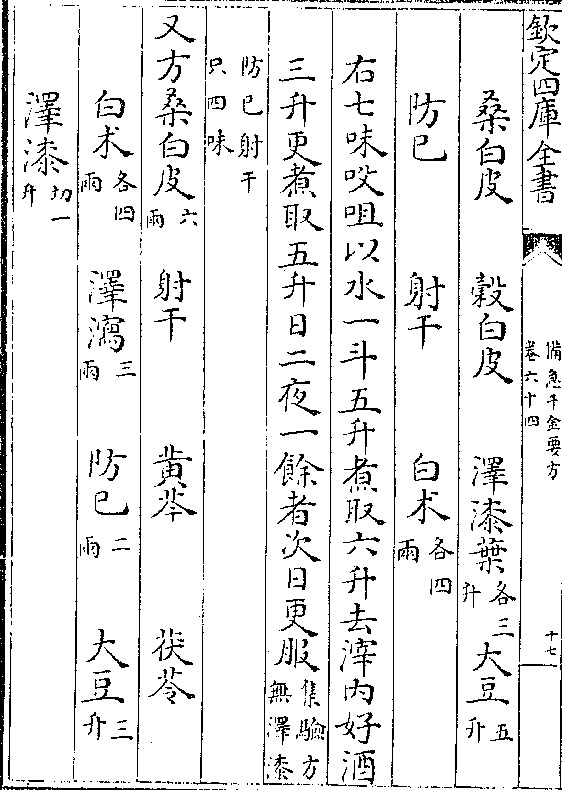 欽定四庫全書
備急千金要方
卷六十四
十七
桑白皮 榖白皮 澤漆葉各三升 大豆五升
防已 射干 白术各四兩
右七味㕮咀以水一斗五升煮取六升去滓内好酒
三升更煮取五升日二夜一餘者次日更服集驗方無澤漆
防已射干只四味
又方桑白皮六兩 射干 黄芩 茯苓
白术各四兩 澤瀉三兩 防已二兩 大豆三升
澤漆切一升